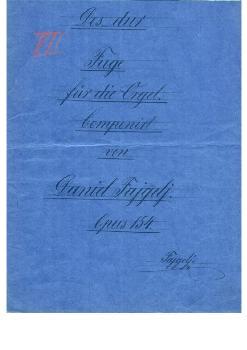 Des dur
VII
Fuge
für die Orgel.
Componirt
von
Daniel Fajgelj.
Opus 154.
Fajgelj